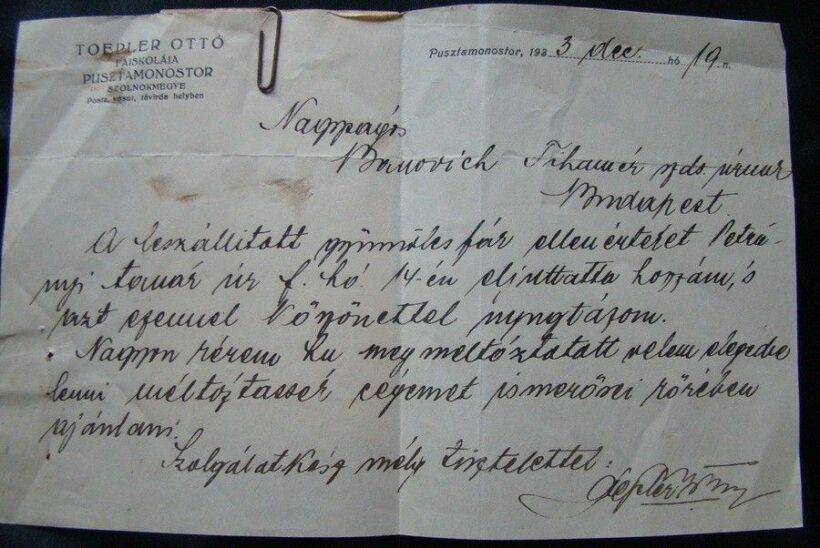 TOEPLER OTTÓ
FAISKOLÁJA
PUSZTAMONOSTOR
SZOLNOKMEGYE
Posta, vasut, távirda helyben
Pusztamonostor, 193 3 dec. hó 19. n.
Nagyságos
Banovich Tihamér urnak
Budapest.
A leszállitott gyümölcsfák ellenértékét Petrá-
nyi tanár úr f. hó 14-én eljuttatta hozzám, s
azt ezennel köszönettel nyugtázom.
Nagyon kérem ha megméltóztatott velem elégedve
lenni méltóztassék cégemet ismerősei körében
ajánlani.
Szolgálatkész mély tisztelettel: